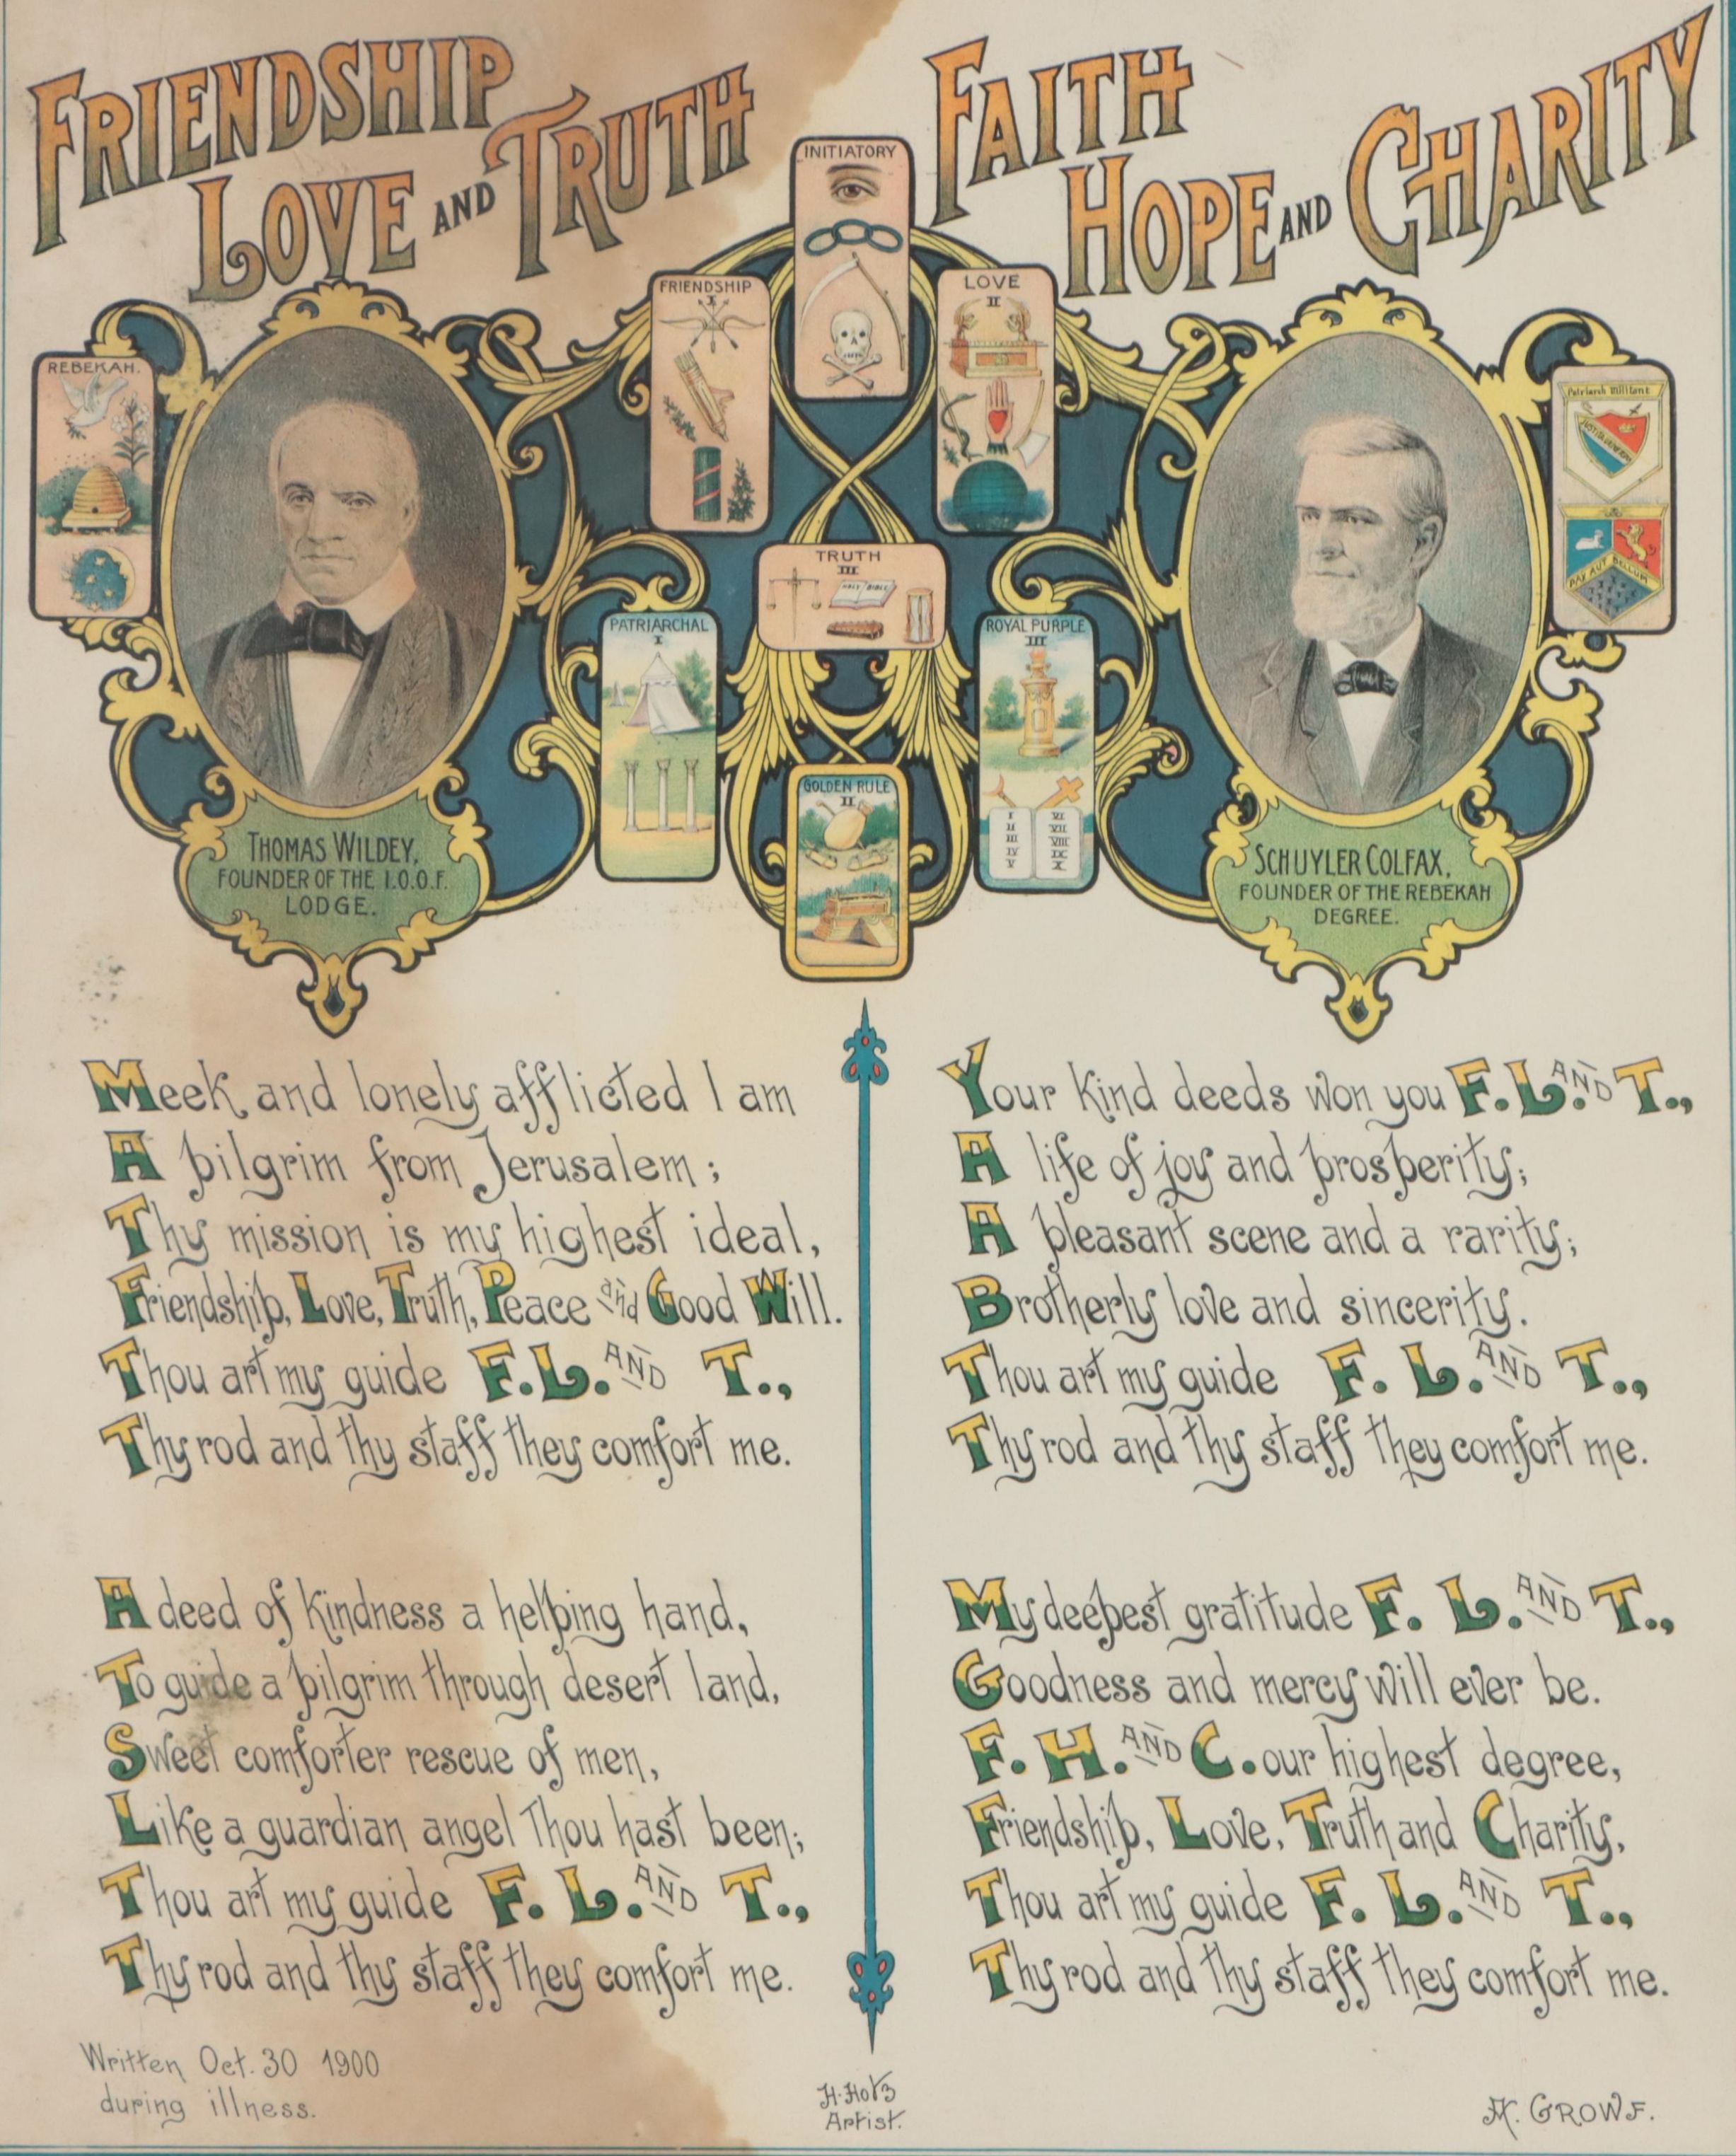 FRIENDSHIP
LOVE AND TRUTH
FAITH
HOPE AND CHARITY
INITIATORY
FRIENDSHIP
I
LOVE
II
REBEKAH.
Patriarch Militant
PAX AUT BELLUM
TRUTH
III
HOLY BIBLE
PATRIARCHAL
I
ROYAL PURPLE
III
I
II
III
IV
V
VI
VII
VIII
IX
X
GOLDEN RULE
II
THOMAS WILDEY,
FOUNDER OF THE I.O.O.F.
LODGE.
SCHUYLER COLFAX,
FOUNDER OF THE REBEKAH
DEGREE.
Meek and lonely afflicted I am
A pilgrim from Jerusalem;
Thy mission is my highest ideal,
Friendship, Love, Truth, Peace and Good Will.
Thou art my guide F. L. AND T.,
Thy rod and thy staff they comfort me.
A deed of kindness a helping hand,
To guide a pilgrim through desert land,
Sweet comforter rescue of men,
Like a guardian angel Thou hast been;
Thou art my guide F. L. AND T.,
Thy rod and thy staff they comfort me.
Your kind deeds won you F. L. AND T.,
A life of joy and prosperity;
A pleasant scene and a rarity;
Brotherly love and sincerity.
Thou art my guide F. L. AND T.,
Thy rod and thy staff they comfort me.
My deepest gratitude F. L. AND T.,
Goodness and mercy will ever be.
F. H. AND C. our highest degree,
Friendship, Love, Truth and Charity,
Thou art my guide F. L. AND T.,
Thy rod and thy staff they comfort me.
Written Oct. 30 1900
during illness.
Artist.
GROWF.